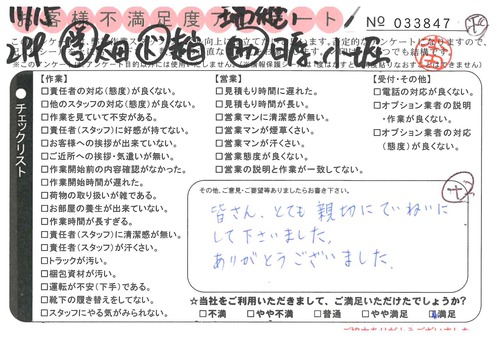 お客様不満足度アンケート
No 033847
チェックリスト
【作業】
□責任者の対応(態度)が良くない。
□他のスタッフの対応(態度)が良くない。
□作業を見ていて不安がある。
□責任者(スタッフ)に好感が持てない。
□お客様への挨拶が出来ていない。
□ご近所への挨拶・気遣いが無い。
□作業開始前の内容確認がなかった。
□作業開始時間が遅れた。
□荷物の取り扱いが雑である。
□お部屋の養生が出来ていない。
□作業時間が長すぎる。
□責任者(スタッフ)に清潔感が無い。
□責任者(スタッフ)が汗くさい。
□トラックが汚い。
□梱包資材が汚い。
□運転が不安(下手)である。
□靴下の履き替えをしてない。
□スタッフにやる気が感じられない。
【営業】
□見積もり時間に遅れた。
□見積もり時間が長い。
□営業マンに清潔感が無い。
□営業マンが煙草くさい。
□営業マンが汗くさい。
□営業態度が良くない。
□営業の説明と作業が一致してない。
【受付・その他】
□電話の対応が良くない。
□オプション業者の説明
・作業が良くない。
□オプション業者の対応
(態度)が良くない。
その他、ご意見・ご要望等ありましたらお書き下さい。
皆さん、とても親切にていねいに
して下さいました。
ありがとうございました。
☆当社をご利用いただきまして、ご満足いただけたでしょうか?
□不満 □やや不満 □普通 □やや満足 □満足